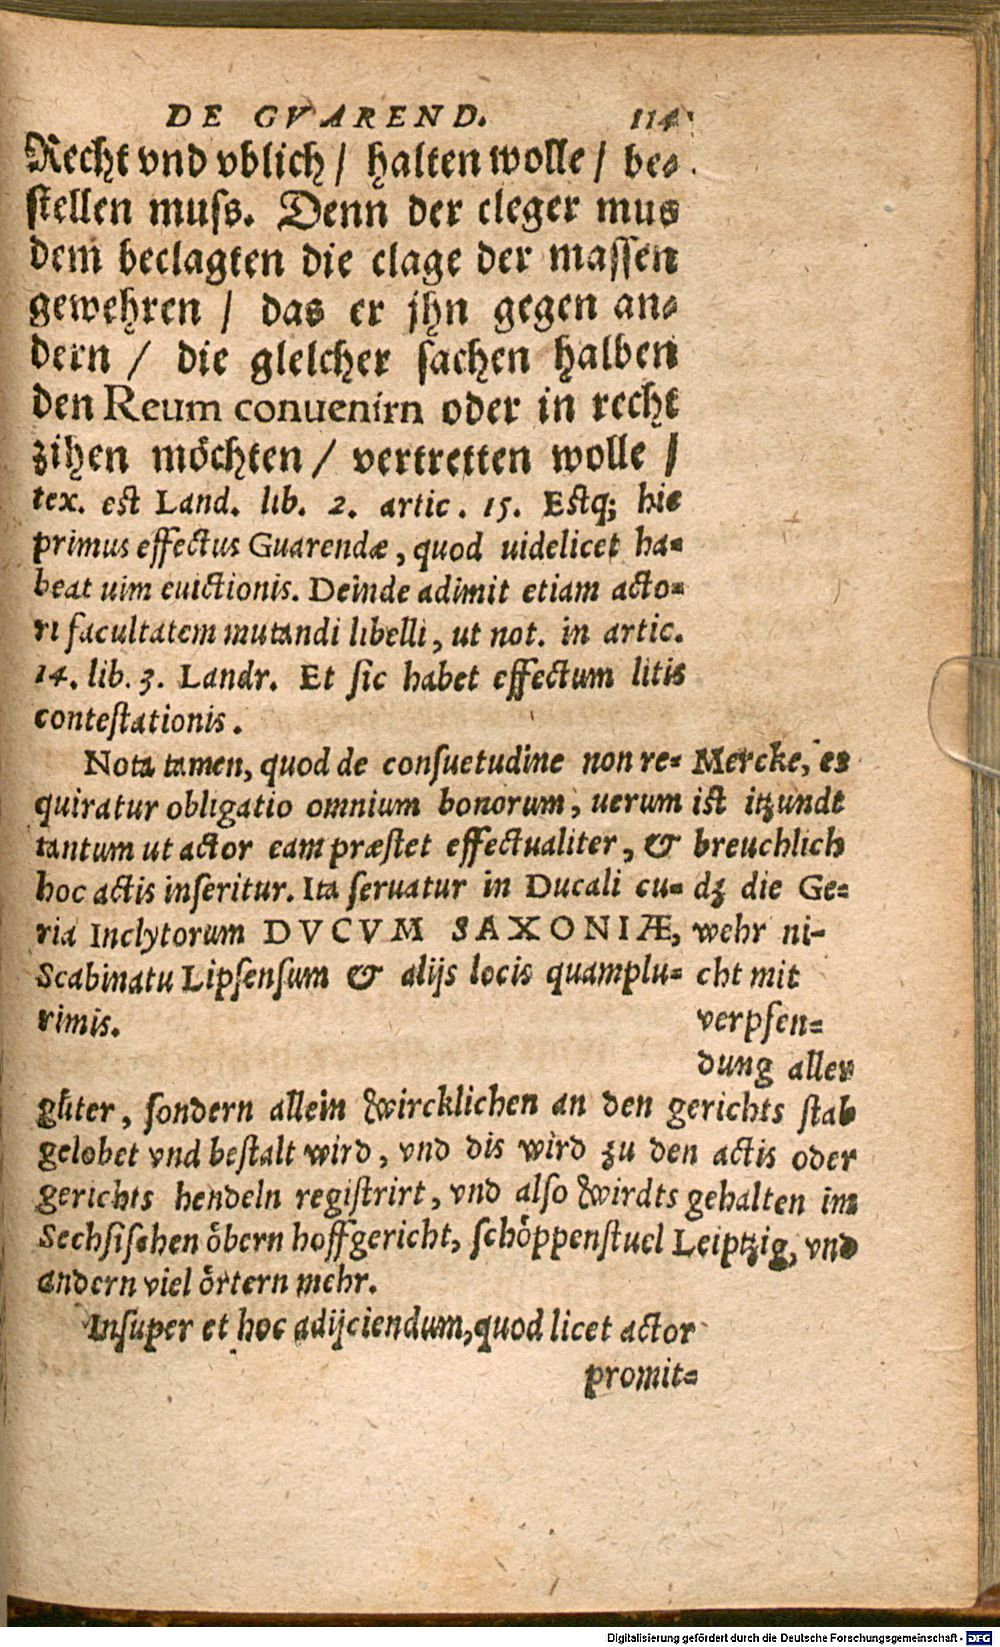 DE GVAREND. 114
Recht vnd vblich / halten wolle / be-
stellen muss. Denn der cleger mus
dem beclagten die clage der massen
gewehren / das er jhn gegen an-
dern / die glelcher sachen halben
den Reum conuenirn oder in recht
zihen möchten / vertretten wolle /
tex. est Land. lib. 2. artic. 15. Estq; hic
primus effectus Guarendæ, quod uidelicet ha-
beat uim euictionis. Deinde adimit etiam acto-
ri facultatem mutandi libelli, ut not. in artic.
14. lib. 3. Landr. Et sic habet effectum litis
contestationis.
Nota tamen, quod de consuetudine non re-
quiratur obligatio omnium bonorum, uerum
tantum ut actor eam præstet effectualiter, &
hoc actis inseritur. Ita seruatur in Ducali cu-
ria Inclytorum DVCVM SAXONIÆ,
Scabinatu Lipsensum & alijs locis quamplu-
rimis.
Mercke, es
ist itzundt
breuchlich
dz die Ge-
wehr ni-
cht mit
verpfen-
dung aller
güter, sondern allein wircklichen an den gerichts stab
gelobet vnd bestalt wird, vnd dis wird zu den actis oder
gerichts hendeln registrirt, vnd also wirdts gehalten im
Sechsischen öbern hoffgericht, schöppenstuel Leiptzig, vnd
andern viel örtern mehr.
Insuper et hoc adijciendum, quod licet actor
promit-
Digitalisierung gefördert durch die Deutsche Forschungsgemeinschaft - DFG